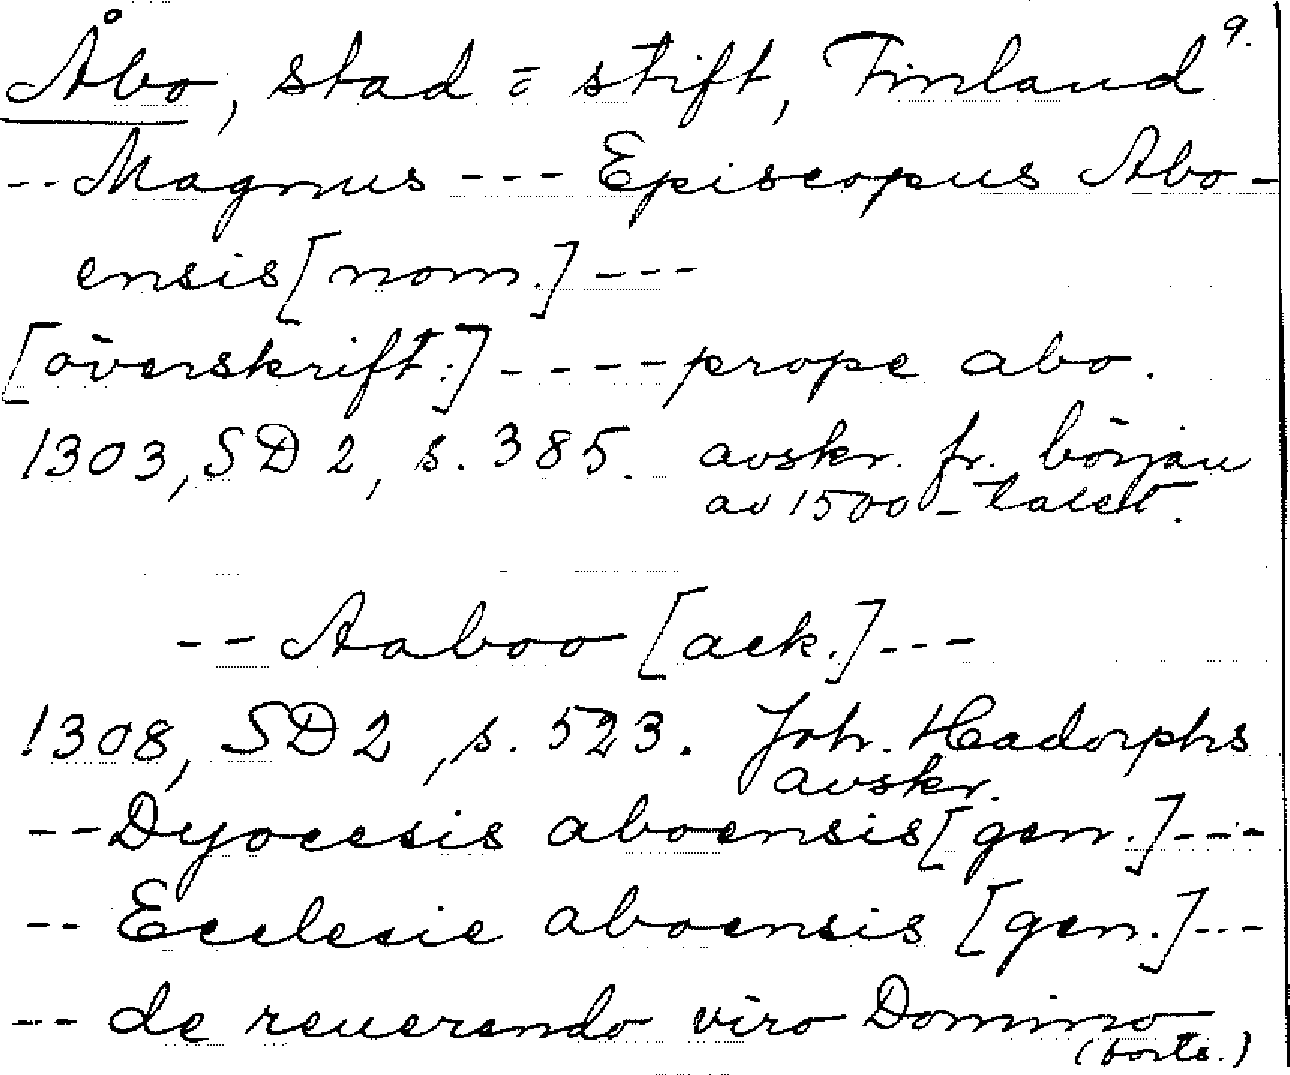 Åbo, stad o. stift, Finland 9.
-- Magnus --- Episcopus Abo-
ensis [nom.] ---
[överskrift:] ---- prope abo.
1303, SD 2, s. 385. avskr. fr. början
av 1500-talet.
-- Aaboo [ack.] ---
1308, SD 2, s. 523. Joh. Hadorphs
avskr.
-- Dyocesis aboensis [gen.] ---
-- Ecclesie aboensis [gen.] ---
-- de reuerendo viro Domino
(forts.)